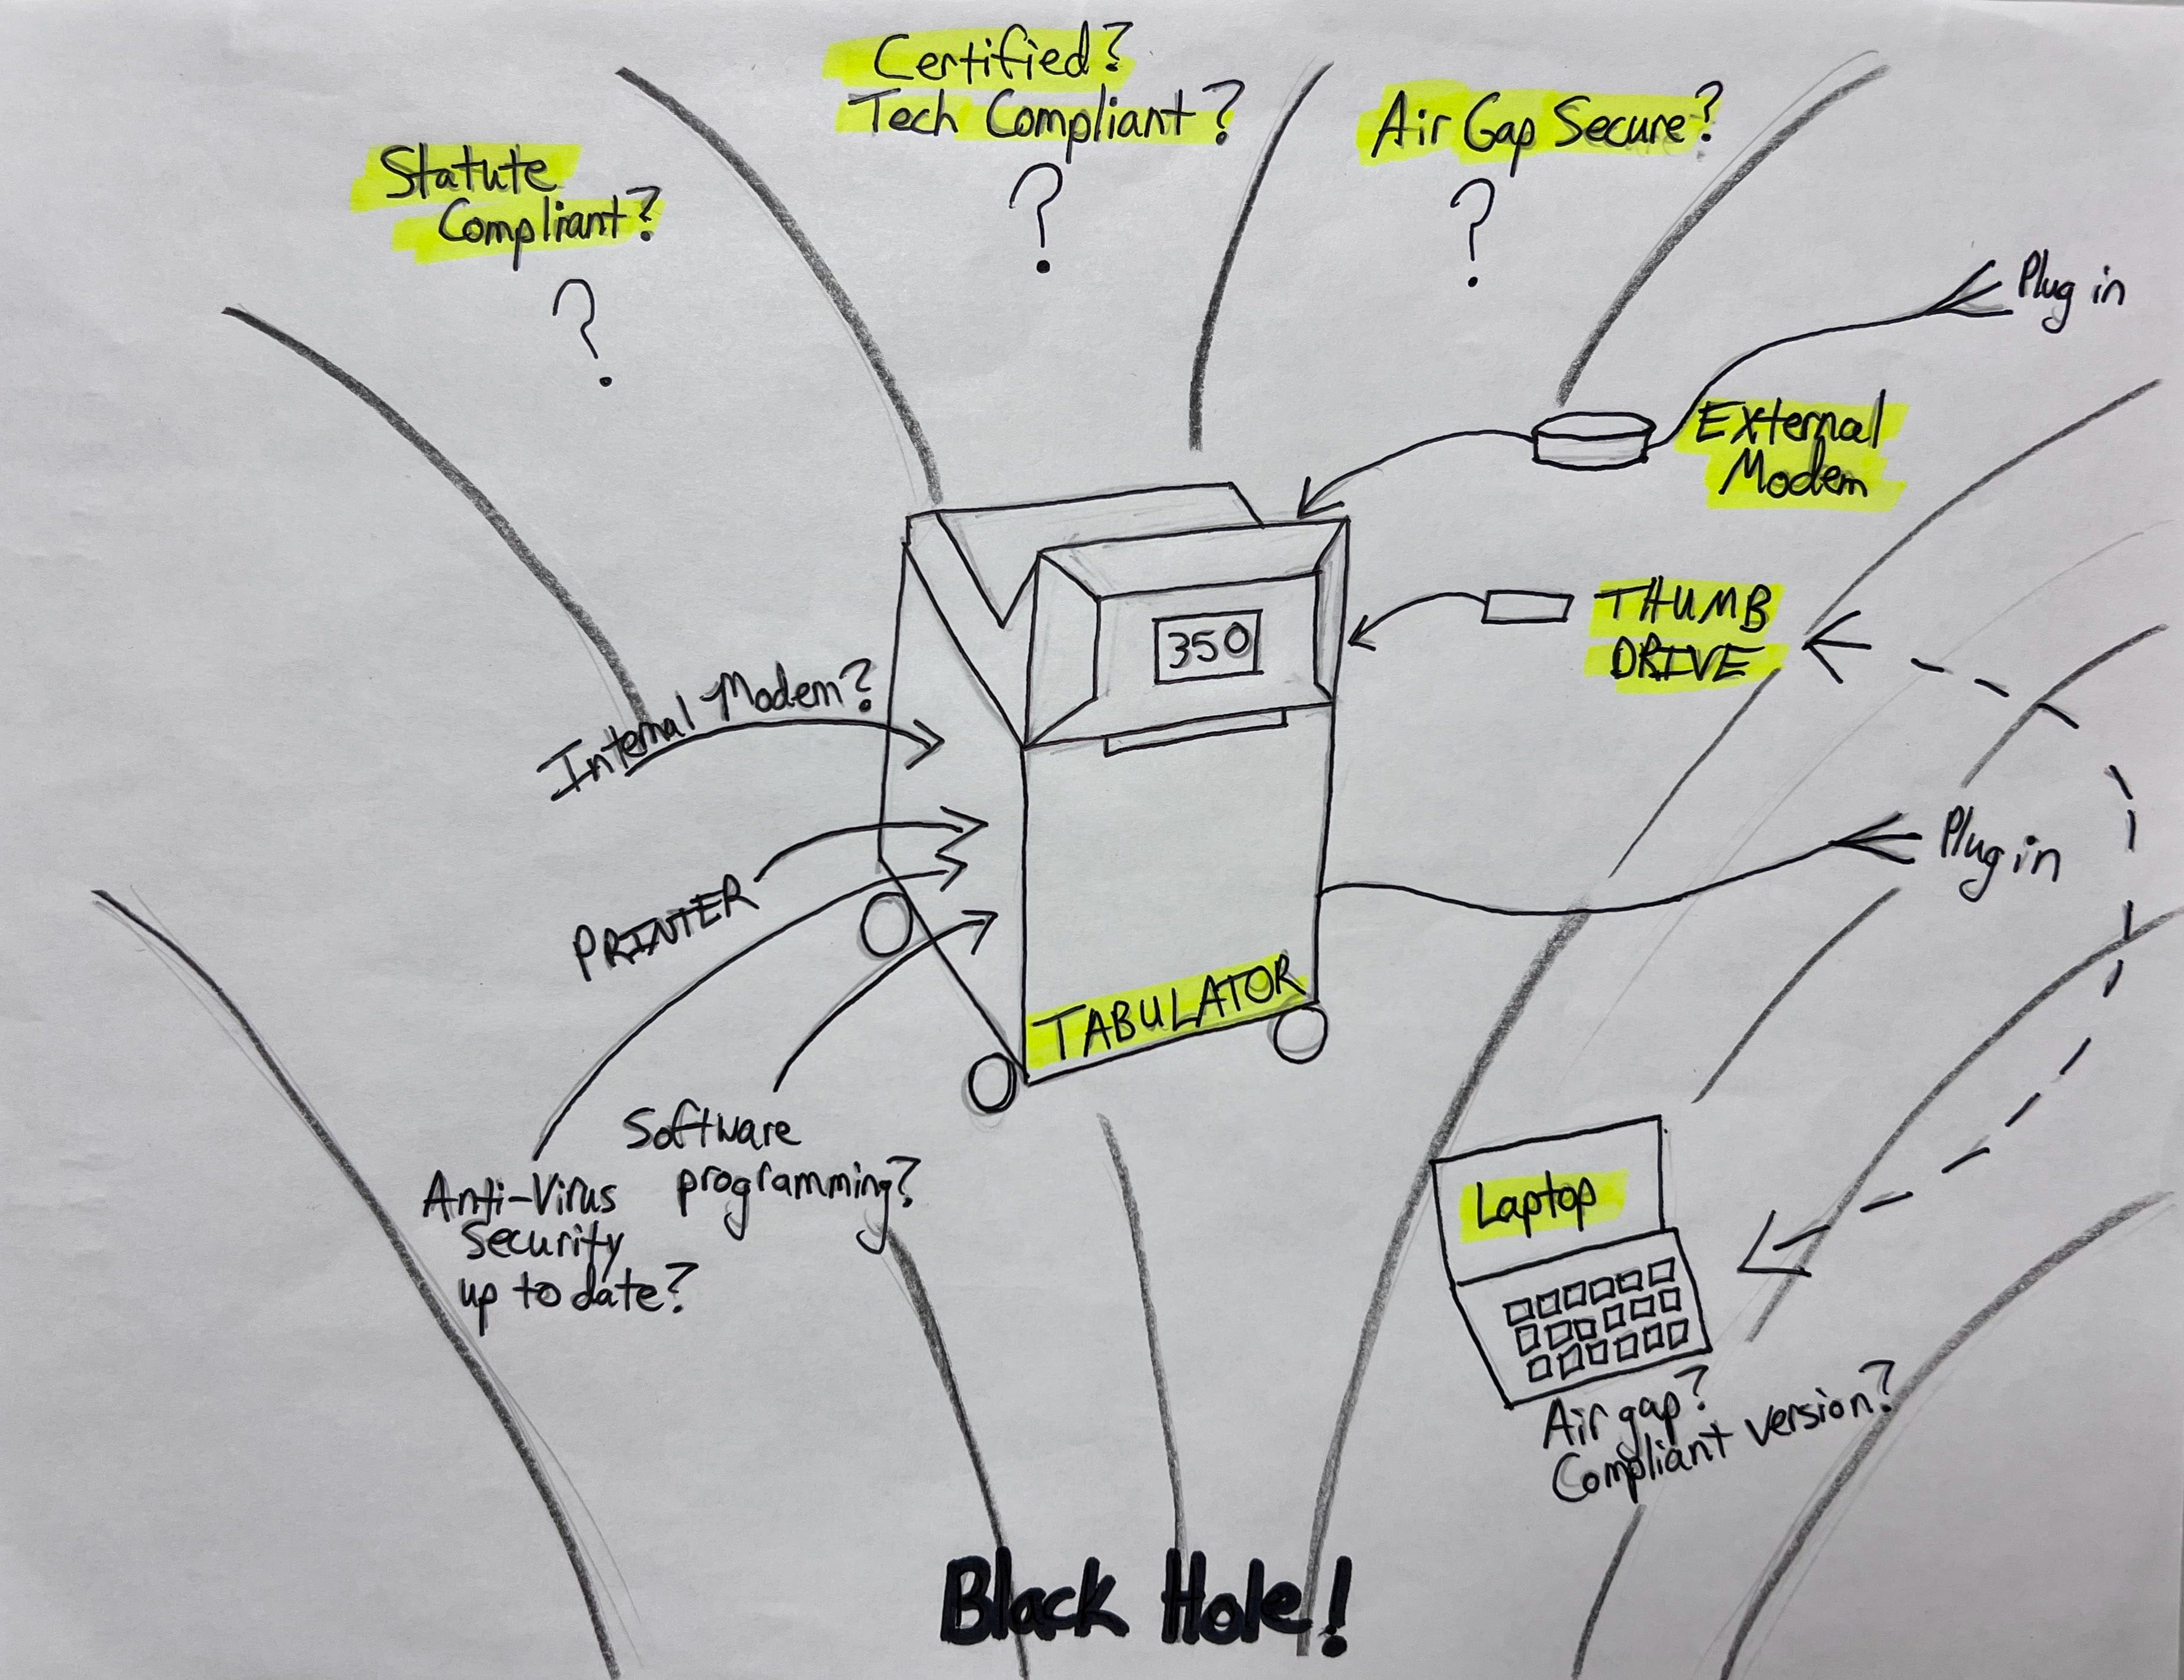 Certified?
Tech Compliant?
?
Air Gap Secure?
?
Statute
Compliant?
?
Plug in
External
Modem
THUMB
DRIVE
350
Internal Modem?
PRINTER
Plug in
TABULATOR
Software
programming?
Anti-Virus
Security
up to date?
Laptop
Air gap?
Compliant version?
Black Hole!